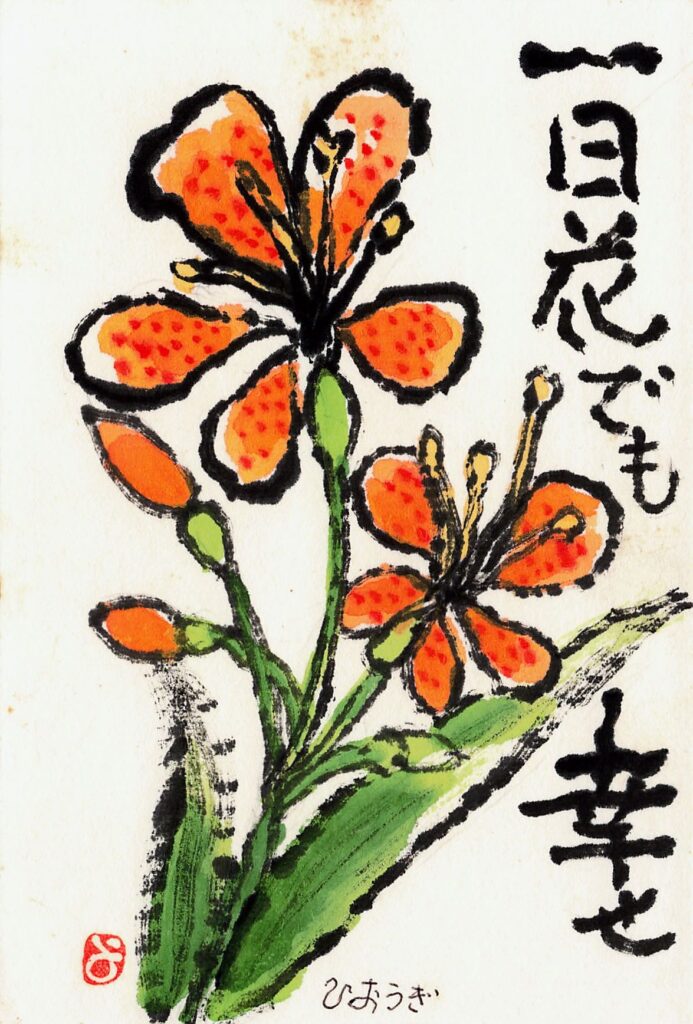 一日花でも
幸せ
ひおうぎ
と